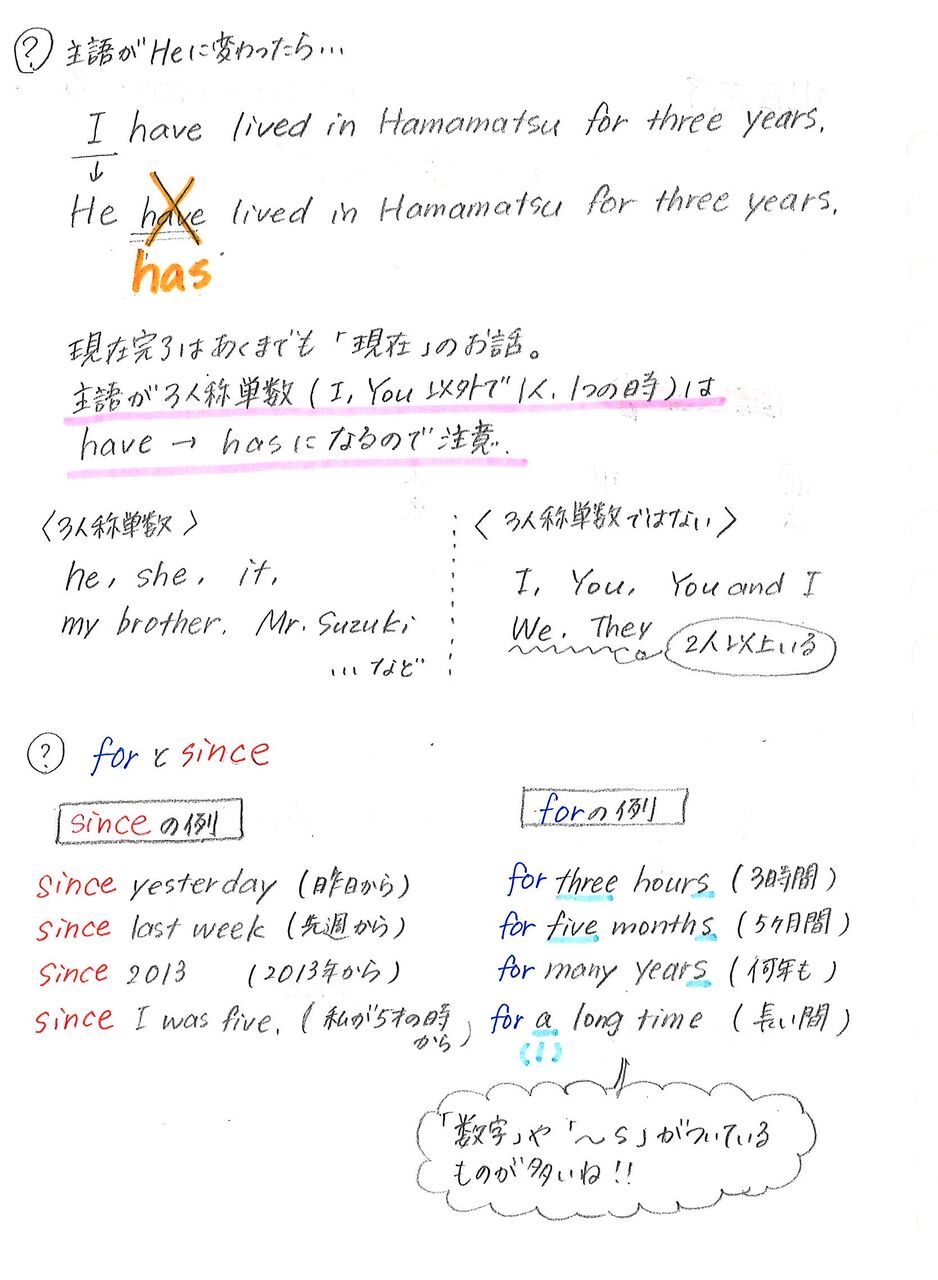 ? 主語がHeに変わったら…
I have lived in Hamamatsu for three years.
↓
He have lived in Hamamatsu for three years.
has
現在完了はあくまでも「現在」のお話。
主語が3人称単数(I, You以外で1人、1つの時)は
have → hasになるので注意。
〈3人称単数〉
he, she, it,
my brother, Mr. Suzuki
…など
〈3人称単数ではない〉
I, You, You and I
We, They 2人以上いる
? forとsince
sinceの例
since yesterday (昨日から)
since last week (先週から)
since 2013 (2013年から)
since I was five. (私が5才の時
から)
forの例
for three hours (3時間)
for five months (5ヶ月間)
for many years (何年も)
for a long time (長い間)
(1)
「数字」や「~s」がついている
ものが多いね!!